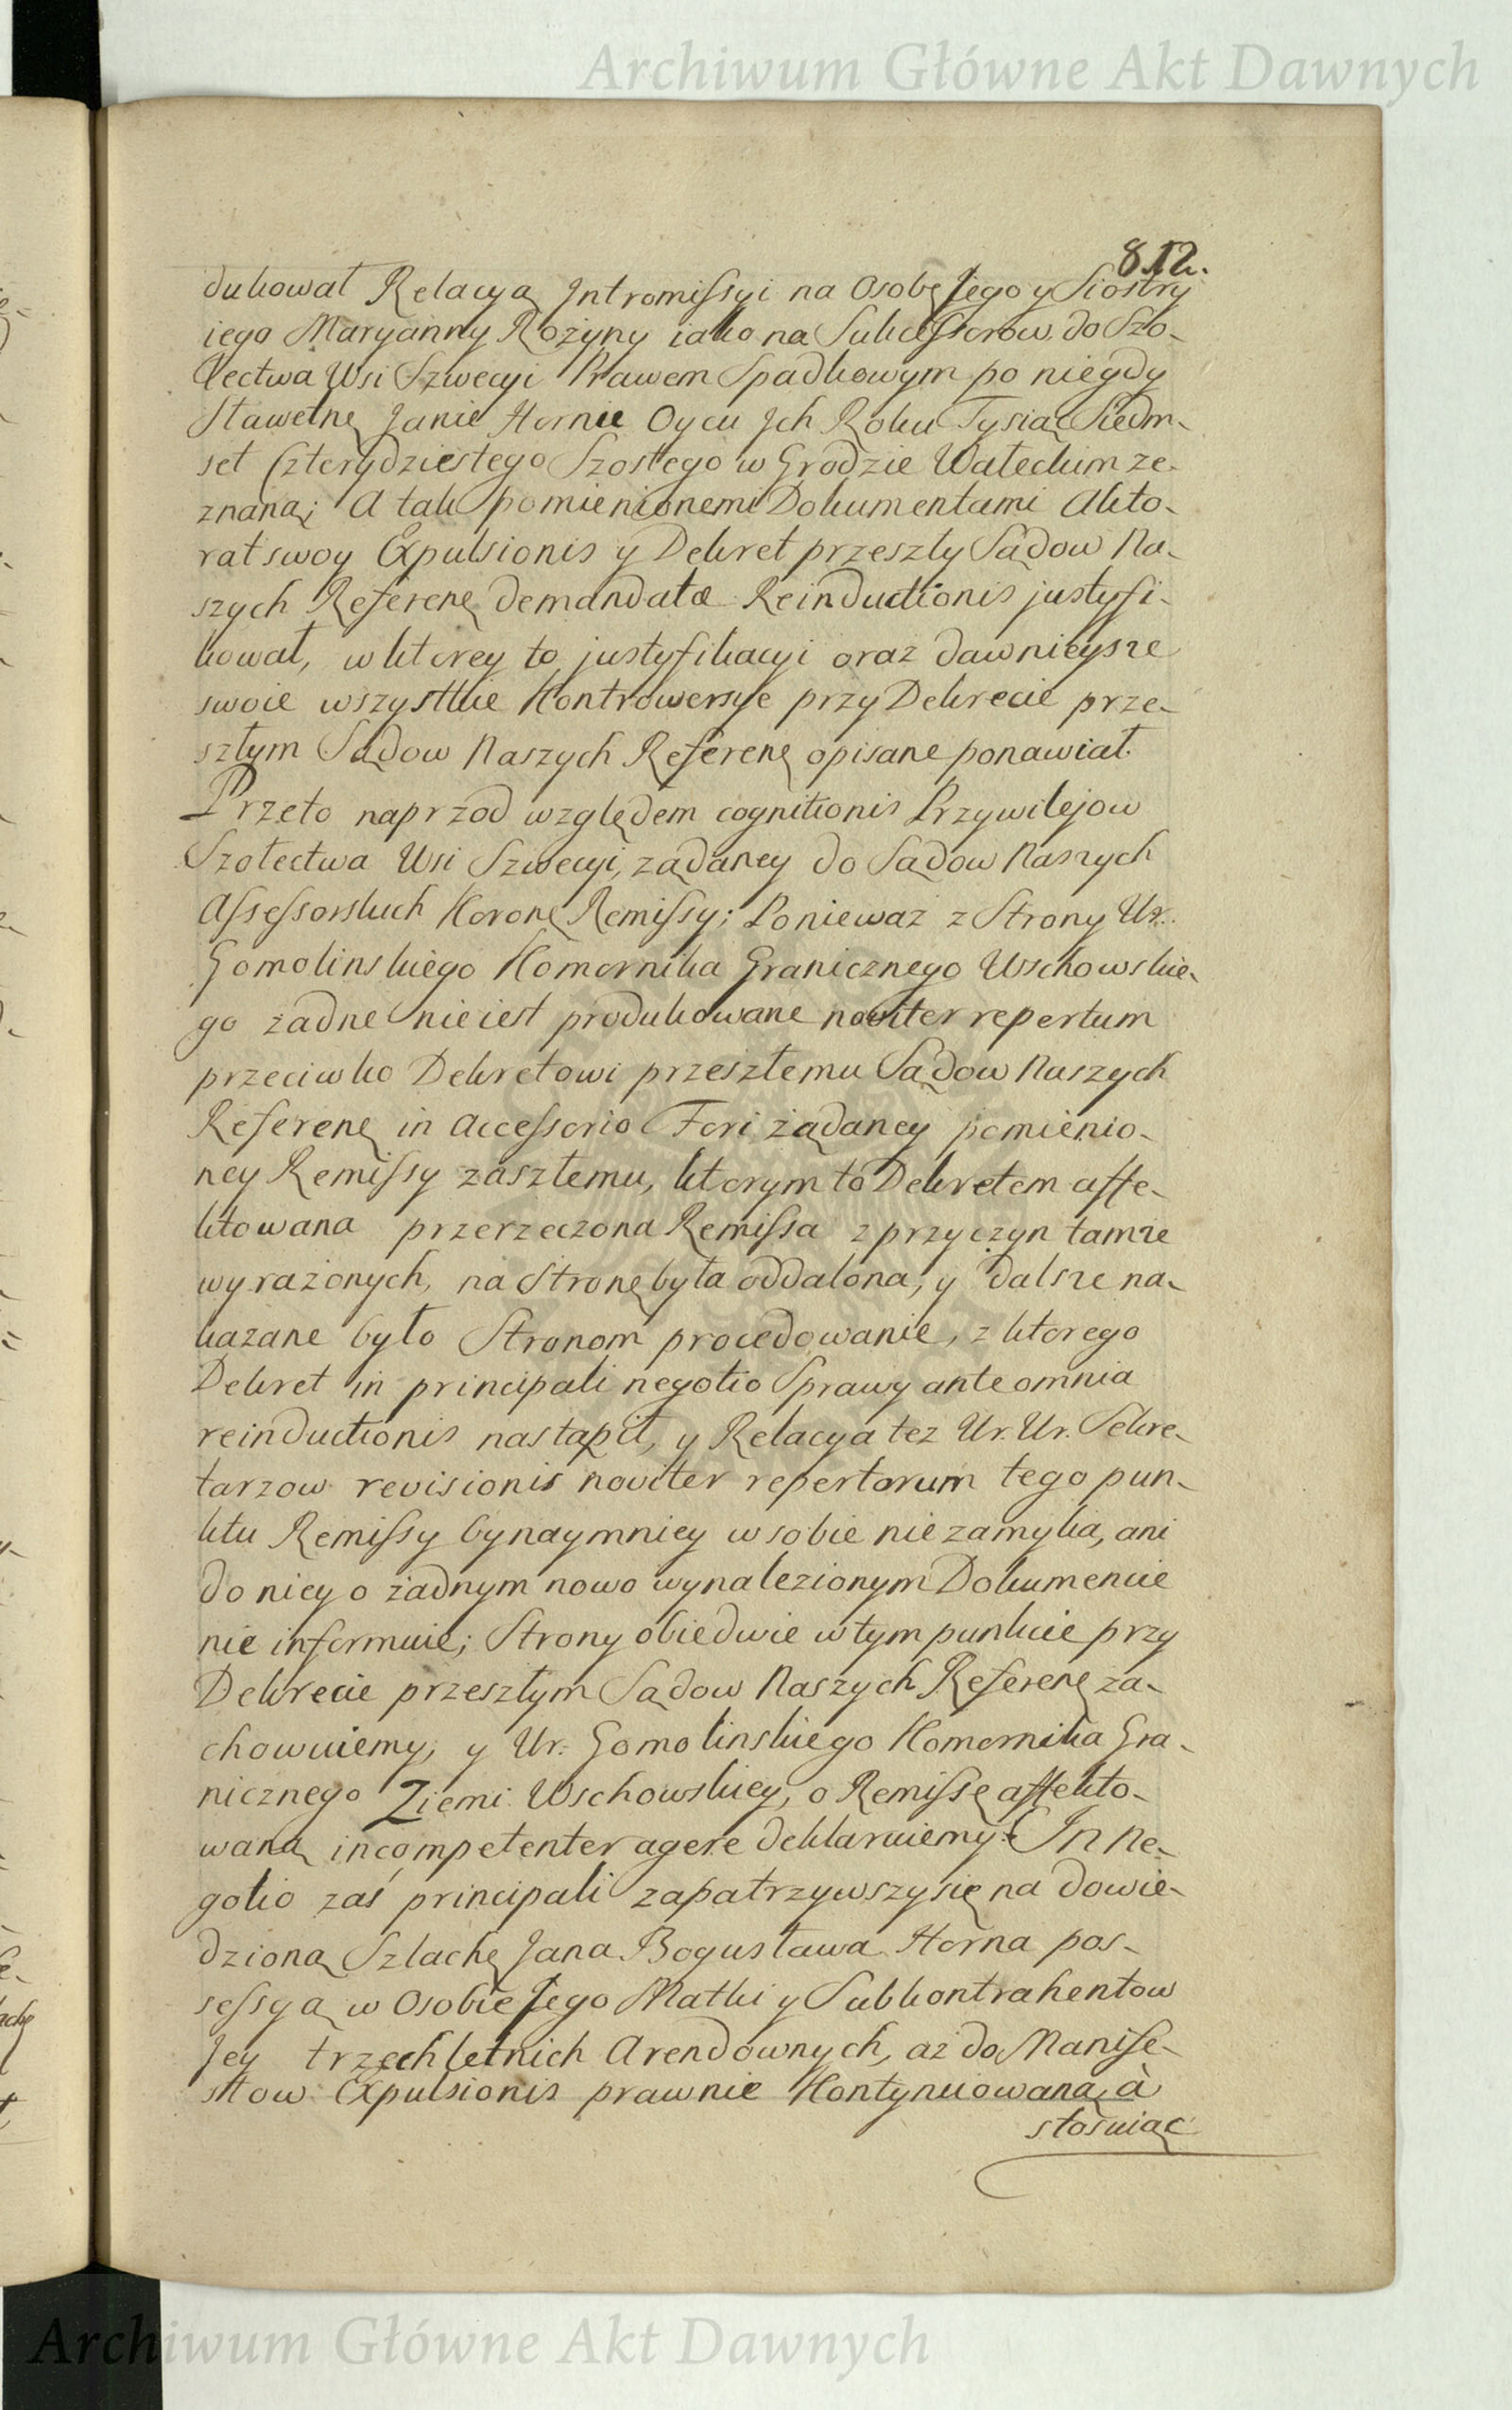 Archiwum Główne Akt Dawnych
812.
dukował Relacyą Intromissyi na Osobę Jego y Siostry
iego Maryanny Rożyny iako na Sukcessorow do Szo-
łectwa Wsi Szwecyi Prawem Spadkowym po niegdy
Sławetnę Janie Hornie Oycu Jch Roku Tysiąc Siedm-
set Czterydziestego Szostego w Grodzie Wałeckim ze-
znaną; A tak pomienionemi Dokumentami Akto-
rat swoy Expulsionis y Dekret przeszły Sądow Na-
szych Referenę demandatæ Reinductionis justyfi-
kował, w ktorey to justyfikacyi oraz dawnieysze
swoie wszystkie Kontrowersye przy Dekrecie prze-
szłym Sądow Naszych Referenę opisane ponawiał.
Przeto naprzod względem cognitionis Przywilejow
Szołectwa Wsi Szwecyi, żądaney do Sądow Naszych
Assessorskich Koronę Remissy; Ponieważ z Strony Ur.
Gomolinskiego Komornika Granicznego Wschowskie-
go żadne nie iest produkowane noviter repertum
przeciwko Dekretowi przeszłemu Sądow Naszych
Referenę in Accessorio Fori żądaney pomienio-
ney Remissy zaszłemu, ktorym to Dekretem affe-
ktowana przerzeczona Remissa z przyczyn tamże
wyrażonych, na stronę była oddalona, y dalsze na-
kazane było Stronom procedowanie, z ktorego
Dekret in principali negotio Sprawy ante omnia
reinductionis nastąpił, y Relacya też Ur. Ur. Sekre-
tarzow revisionis noviter repertorum tego pun-
ktu Remissy bynaymniey w sobie nie zamyka, ani
do niey o żadnym nowo wynalezionym Dokumencie
nie informuie; Strony obiedwie w tym punkcie przy
Dekrecie przeszłym Sądow Naszych Referenę za-
chowuiemy, y Ur. Gomolinskiego Komornika Gra-
nicznego Ziemi Wschowskiey, o Remissę affekto-
waną incompetenter agere deklaruiemy. In ne-
gotio zaś principali zapatrzywszy się na dowie-
dzioną Szlachę Jana Bogusława Horna pos-
sessyą w Osobie Jego Matki y Subkontrahentow
Jey trzechletnich Arendownych, aż do Manife-
stow Expulsionis prawnie Kontynuowaną, à
stosuiąc
Archiwum Główne Akt Dawnych